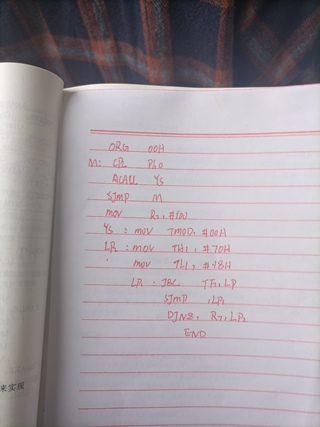 ORG 00H
M: CPL P1.0
ACALL YS
SJMP M
MOV R7, #100
YS : MOV TMOD, #00H
LP2 : MOV TH1, #70H
MOV TL1, #18H
LP1 : JBC TF1, LP
SJMP , LP1
DJNZ, R7, LP2
END
来实现